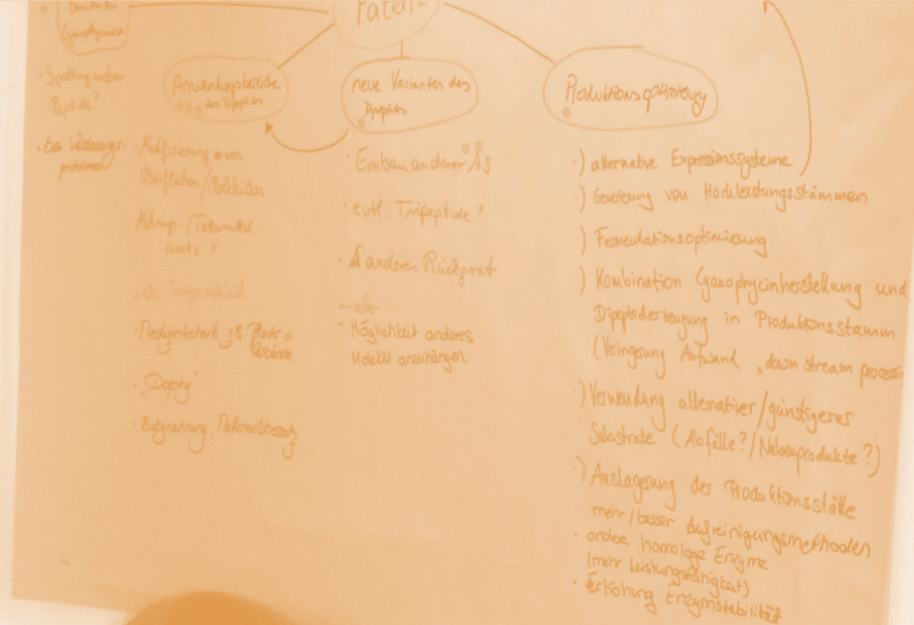 Patent
Cyanophycinase
· Spaltung anderer
Peptide?
· bei Verdauungs-
problemen
Anwendungsbereiche
des Dipeptids
· Modifizierung von
Oberflächen/Molekülen
Nahrungs-/Futtermittel-
· Medizintechnik z.B. Pflaster u.
Verbände
· "Doping"
· Babynahrung,
neue Varianten des
Dipeptids
· Einbau anderer AS
· evtl. Tripeptide?
· anderes Rückgrat
· Möglichkeit anderes
Molekül anzuhängen
Produktionsoptimierung
·) alternative Expressionssysteme
·) Generierung von Hochleistungsstämmen
·) Fermentationsoptimierung
·) Kombination Cyanophycinherstellung und
Dipeptiderzeugung in Produktionsstamm
(Veringerung Aufwand "down stream process
·) Verwendung alternativer/günstigerer
Substrate (Abfälle?/Nebenprodukte?)
·) Auslagerung der Produktionsstätte
· mehr/besser Aufreinigungsmethoden
· andere homologe Enzyme
(mehr Leistungsfähigkeit)
· Erhöhung Enzymstabilität